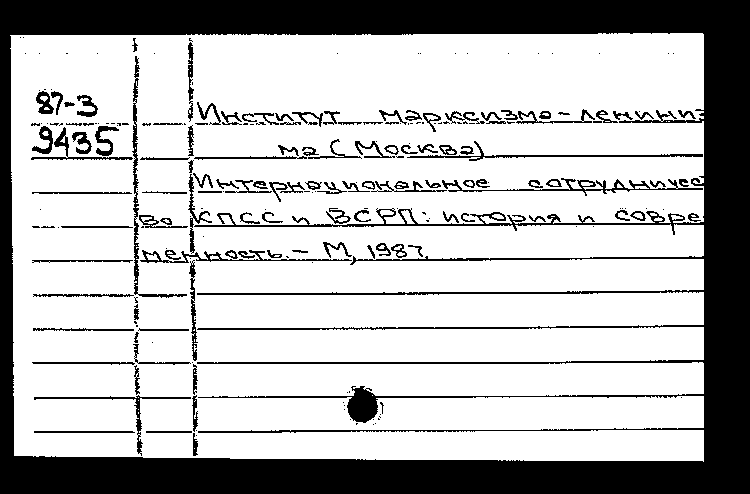 87-3
9435
Институт марксизма-лениниз
ма (Москва)
Интернациональное сотрудничес
во КПСС и ВСРП: история и совре-
менность. - М, 1987.